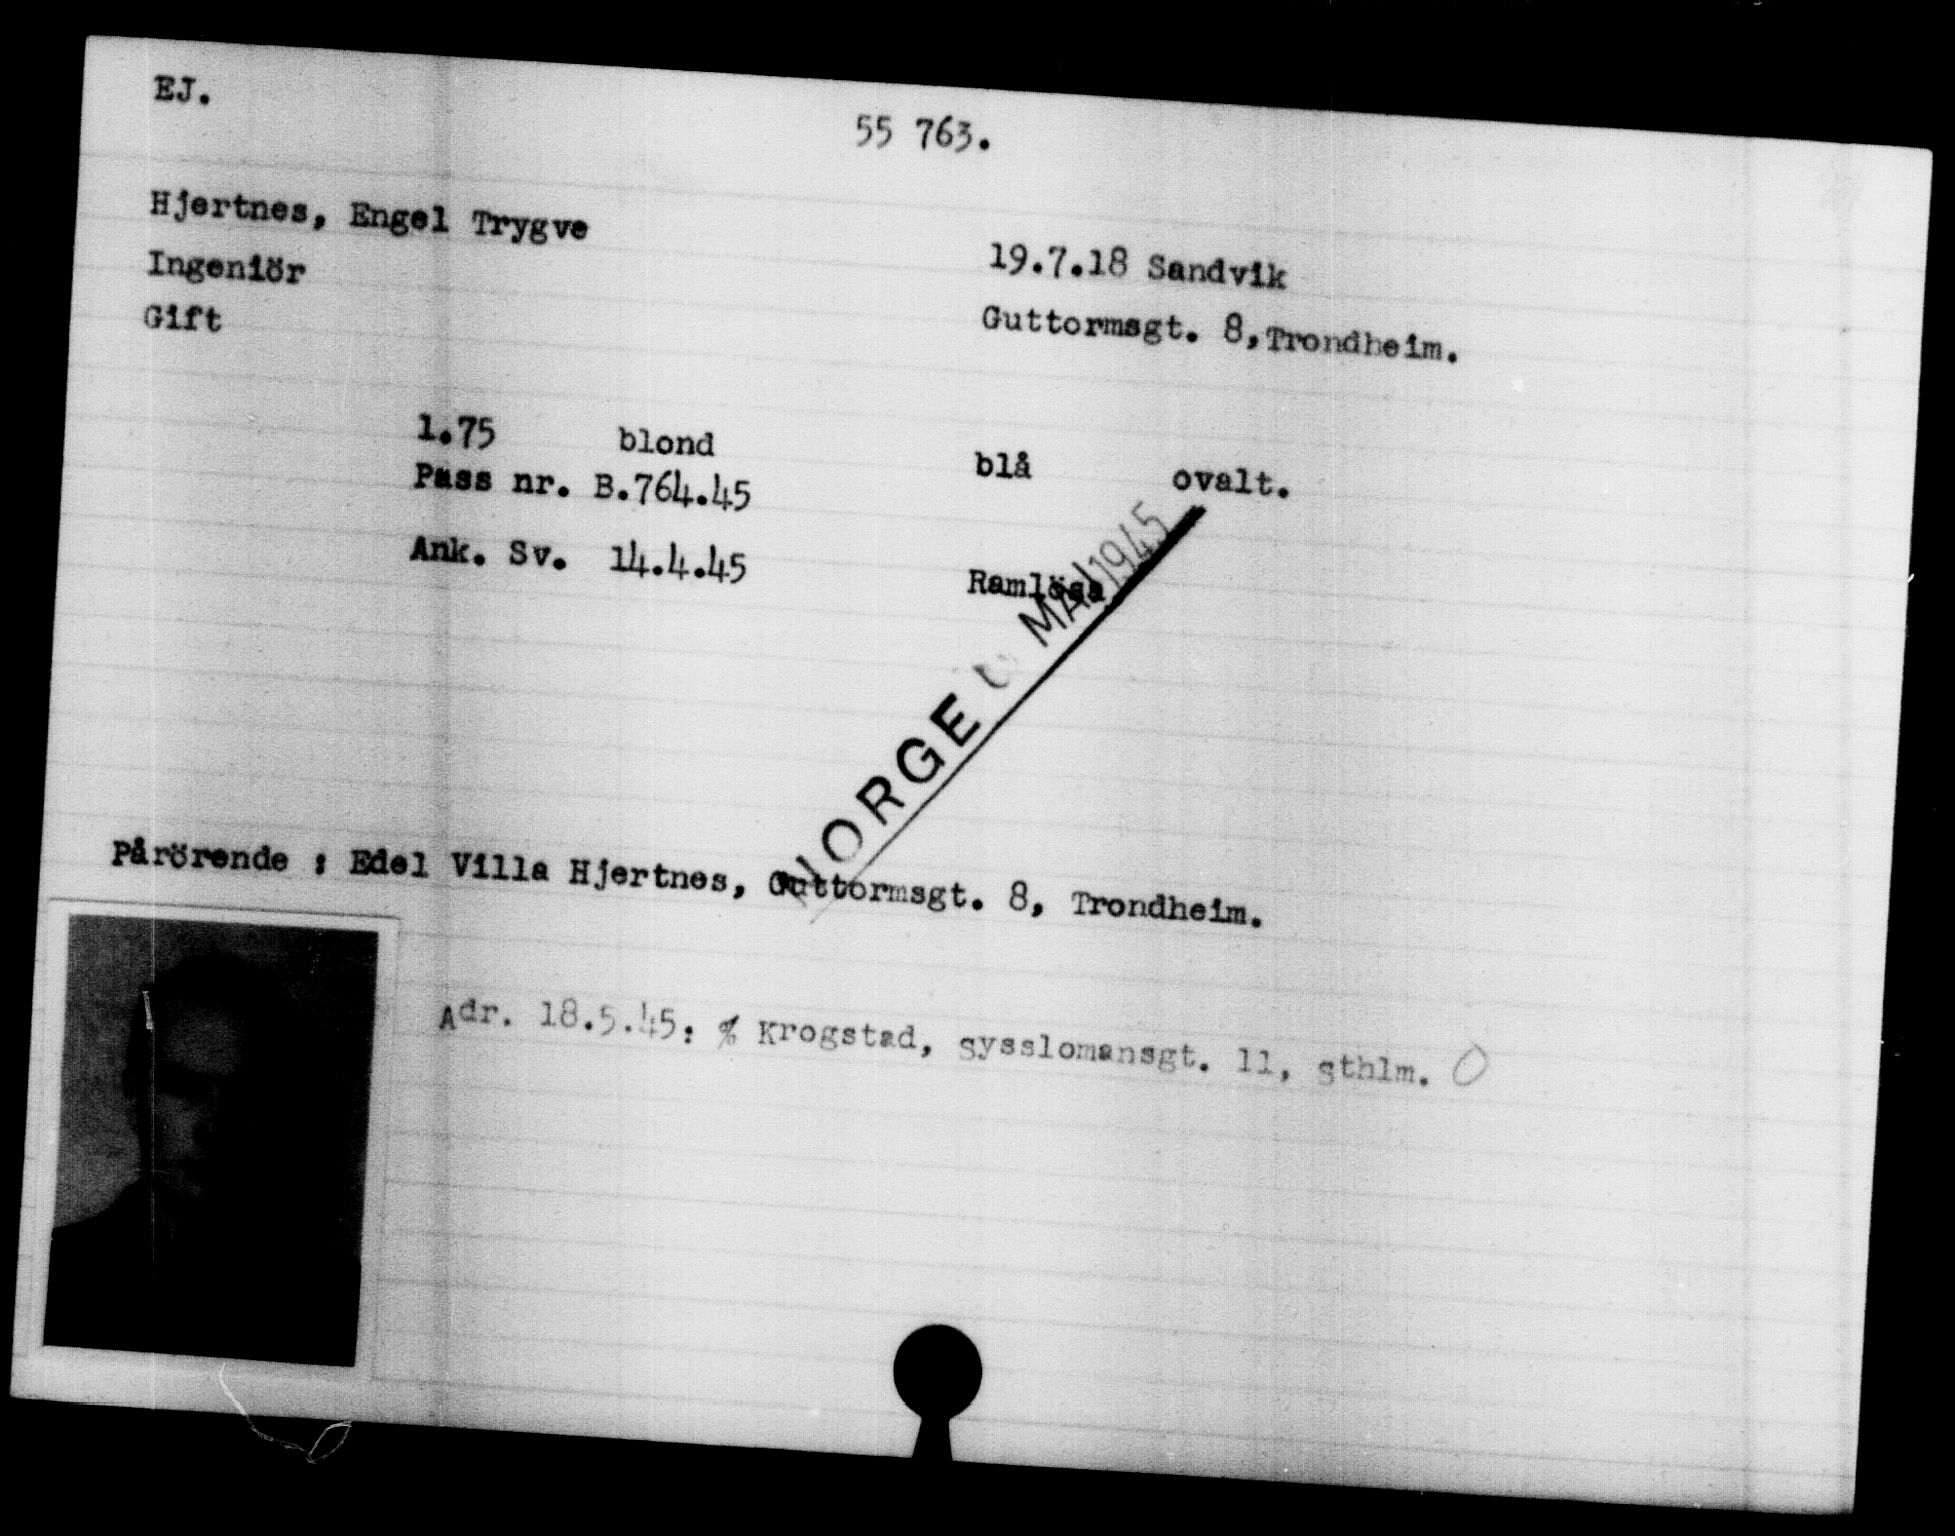 EJ.
55 763.
Hjertnes, Engel Trygve
19.7.18 Sandvik
Ingeniör
Guttormsgt. 8, Trondheim.
Gift
1.75 blond blå ovalt.
Pass nr. B.764.45
Ank. Sv. 14.4.45 Ramlösa
NORGE MAI 1945
Pårörende : Edel Villa Hjertnes, Guttormsgt. 8, Trondheim.
Adr. 18.5.45: % Krogstad, sysslomansgt. 11, sthlm. O